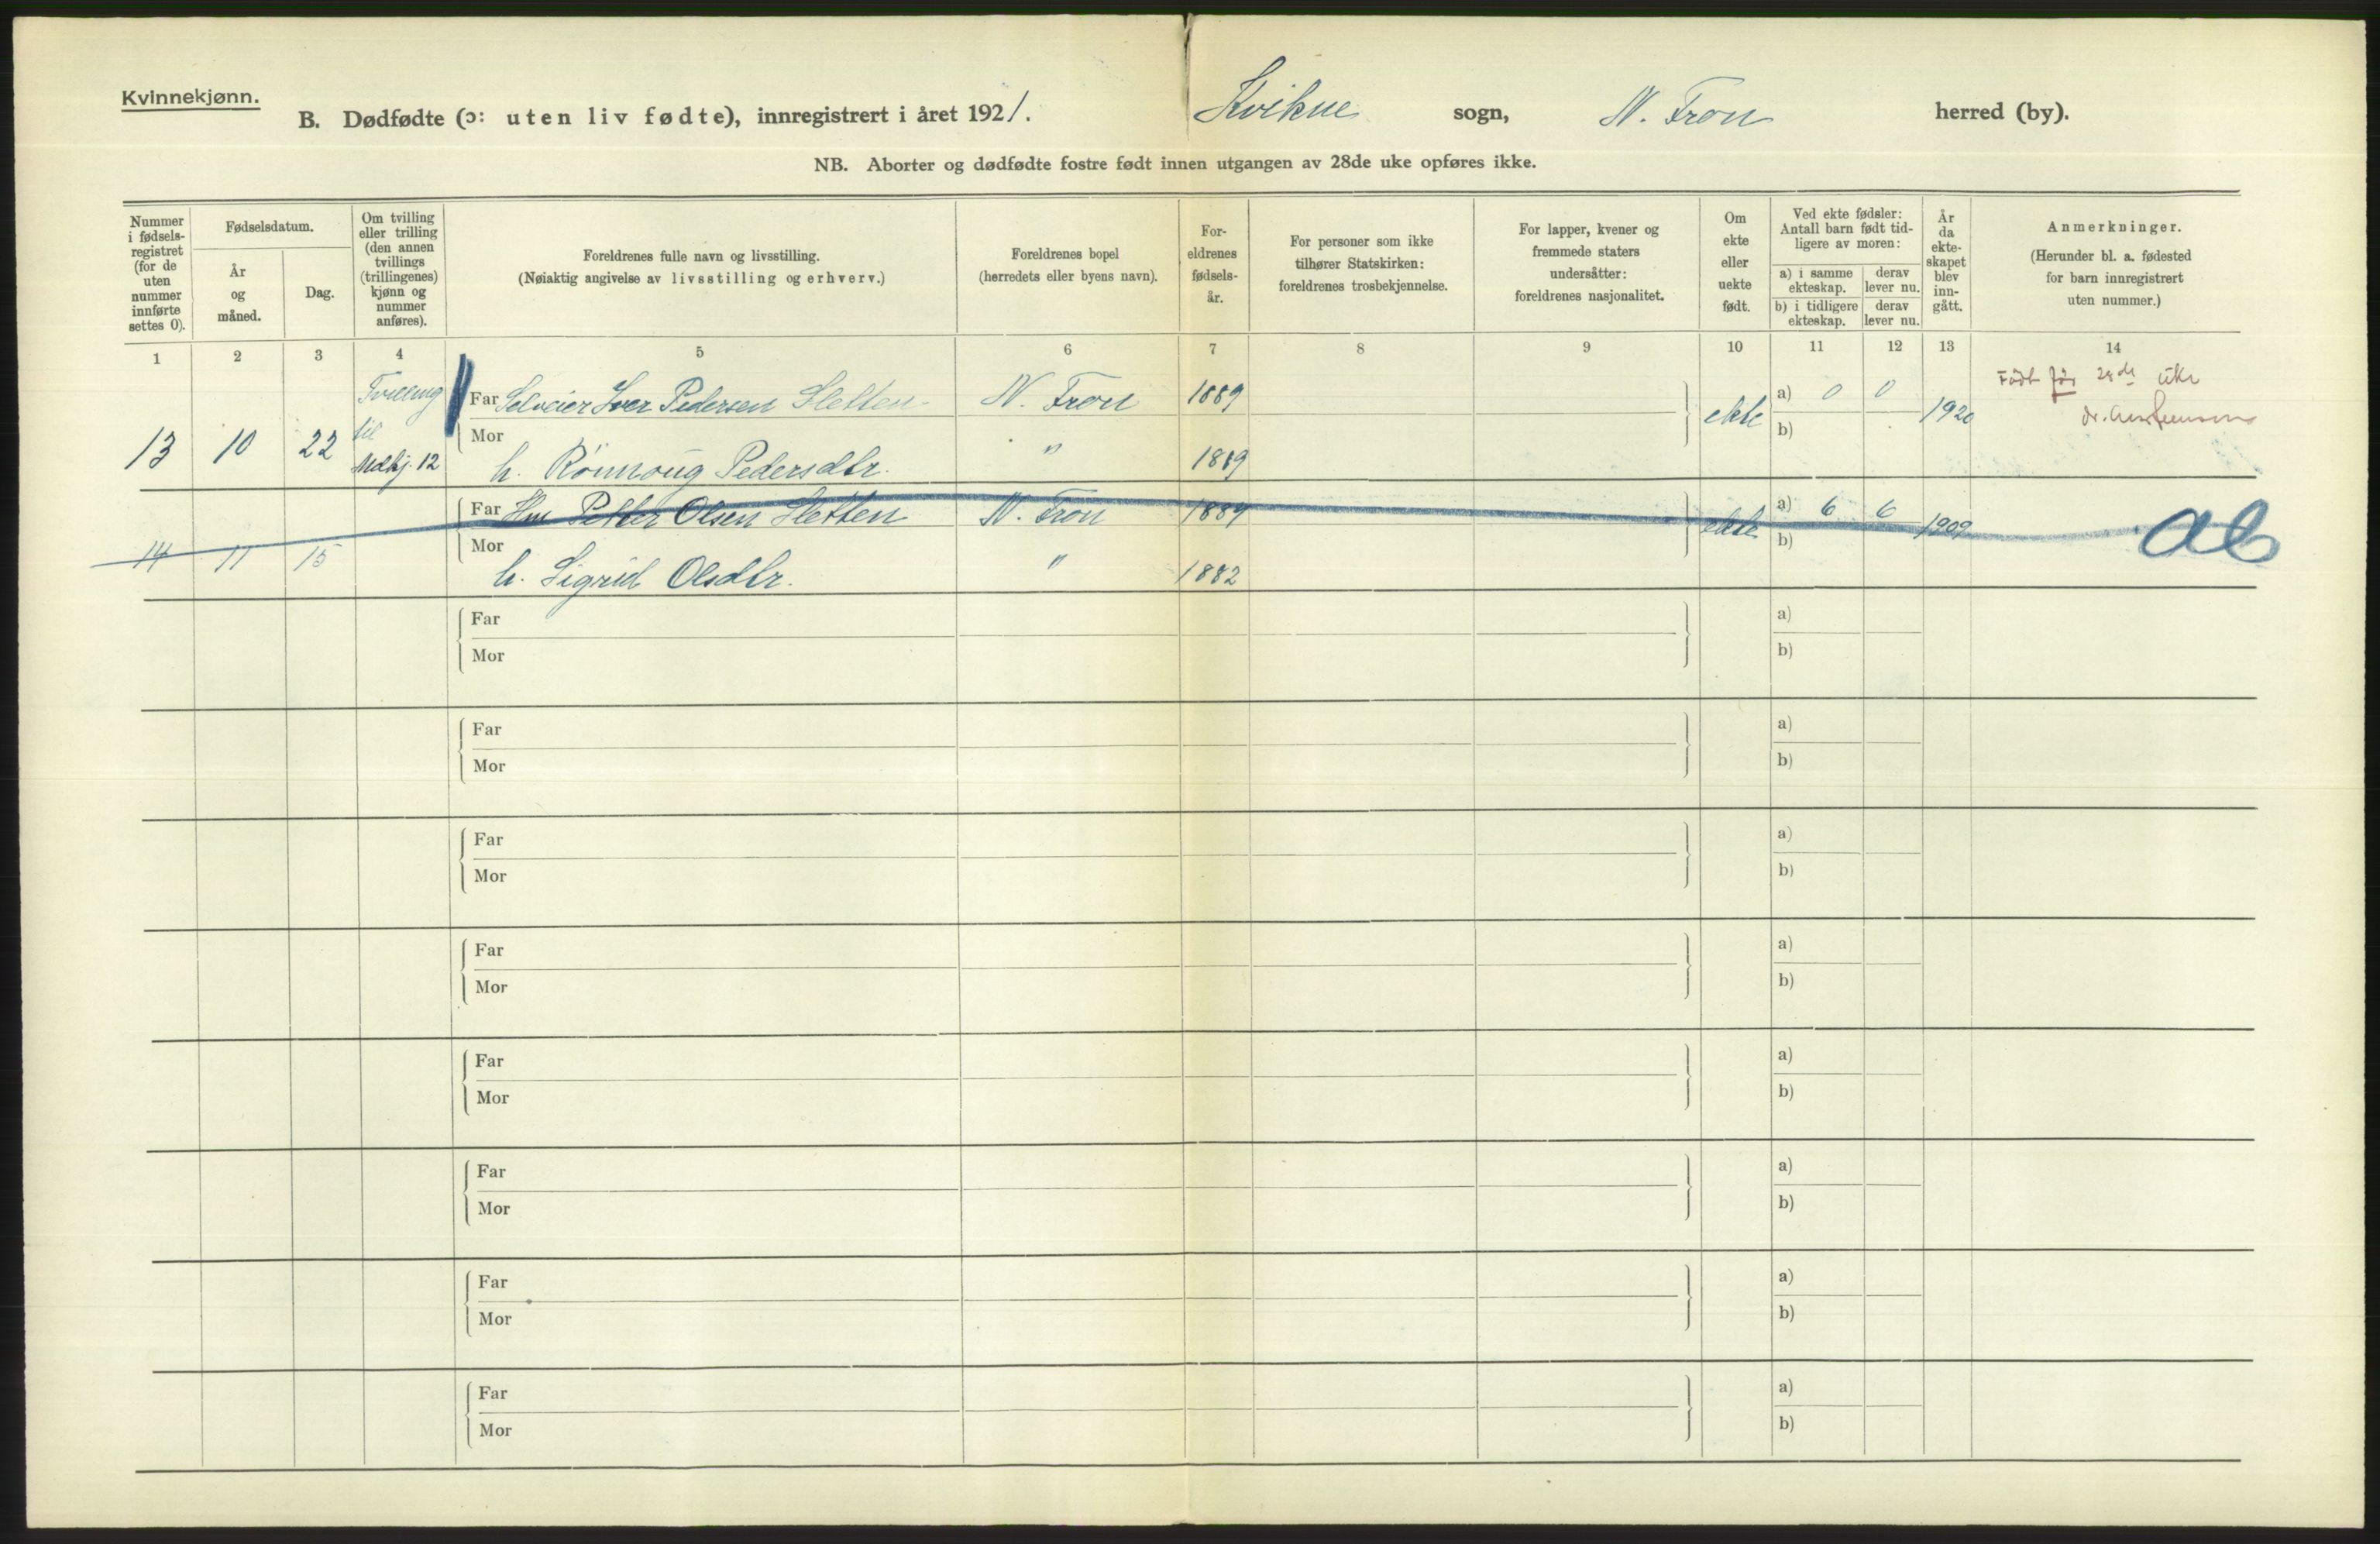 Kvinnekjønn.
B. Dødfødte (ɔ: uten liv fødte), innregistrert i året 1921. Kvikne sogn, N. Fron herred (by).
NB. Aborter og dødfødte fostre født innen utgangen av 28de uke opføres ikke.
Nummer i fødsels-registret (for de uten nummer innførte settes 0).
Fødselsdatum.
År og måned.
Dag.
Om tvilling eller trilling (den annen tvillings (trillingenes) kjønn og nummer anføres).
Foreldrenes fulle navn og livsstilling.
(Nøiaktig angivelse av livsstilling og erhverv.)
Foreldrenes bopel
(herredets eller byens navn).
For-eldrenes fødsels-år.
For personer som ikke tilhører Statskirken: foreldrenes trosbekjennelse.
For lapper, kvener og fremmede staters undersåtter: foreldrenes nasjonalitet.
Om ekte eller uekte født.
Ved ekte fødsler: Antall barn født tid-ligere av moren:
a) i samme ekteskap.
derav lever nu.
b) i tidligere ekteskap.
derav lever nu.
År da ekte-skapet blev inn-gått.
Anmerkninger.
(Herunder bl. a. fødested for barn innregistrert uten nummer.)
1 2 3 4 5 6 7 8 9 10 11 12 13 14
Tvilling til Mdkj. 12
Far Selveier Iver Pedersen Sletten N. Fron 1889
13 10 22 ekte a) 0 0 1920
Født før 28de uke
Mor h. Rönnoug Pedersdtr. " 1889 b)
Far Hm Petter Olsen Sletten N. Fron 1884
14 11 15 ekte a) 6 6 1909
Mor h. Sigrid Olsdtr. " 1882 b)
Far a)
Mor b)
Far a)
Mor b)
Far a)
Mor b)
Far a)
Mor b)
Far a)
Mor b)
Far a)
Mor b)
Far a)
Mor b)
Far a)
Mor b)